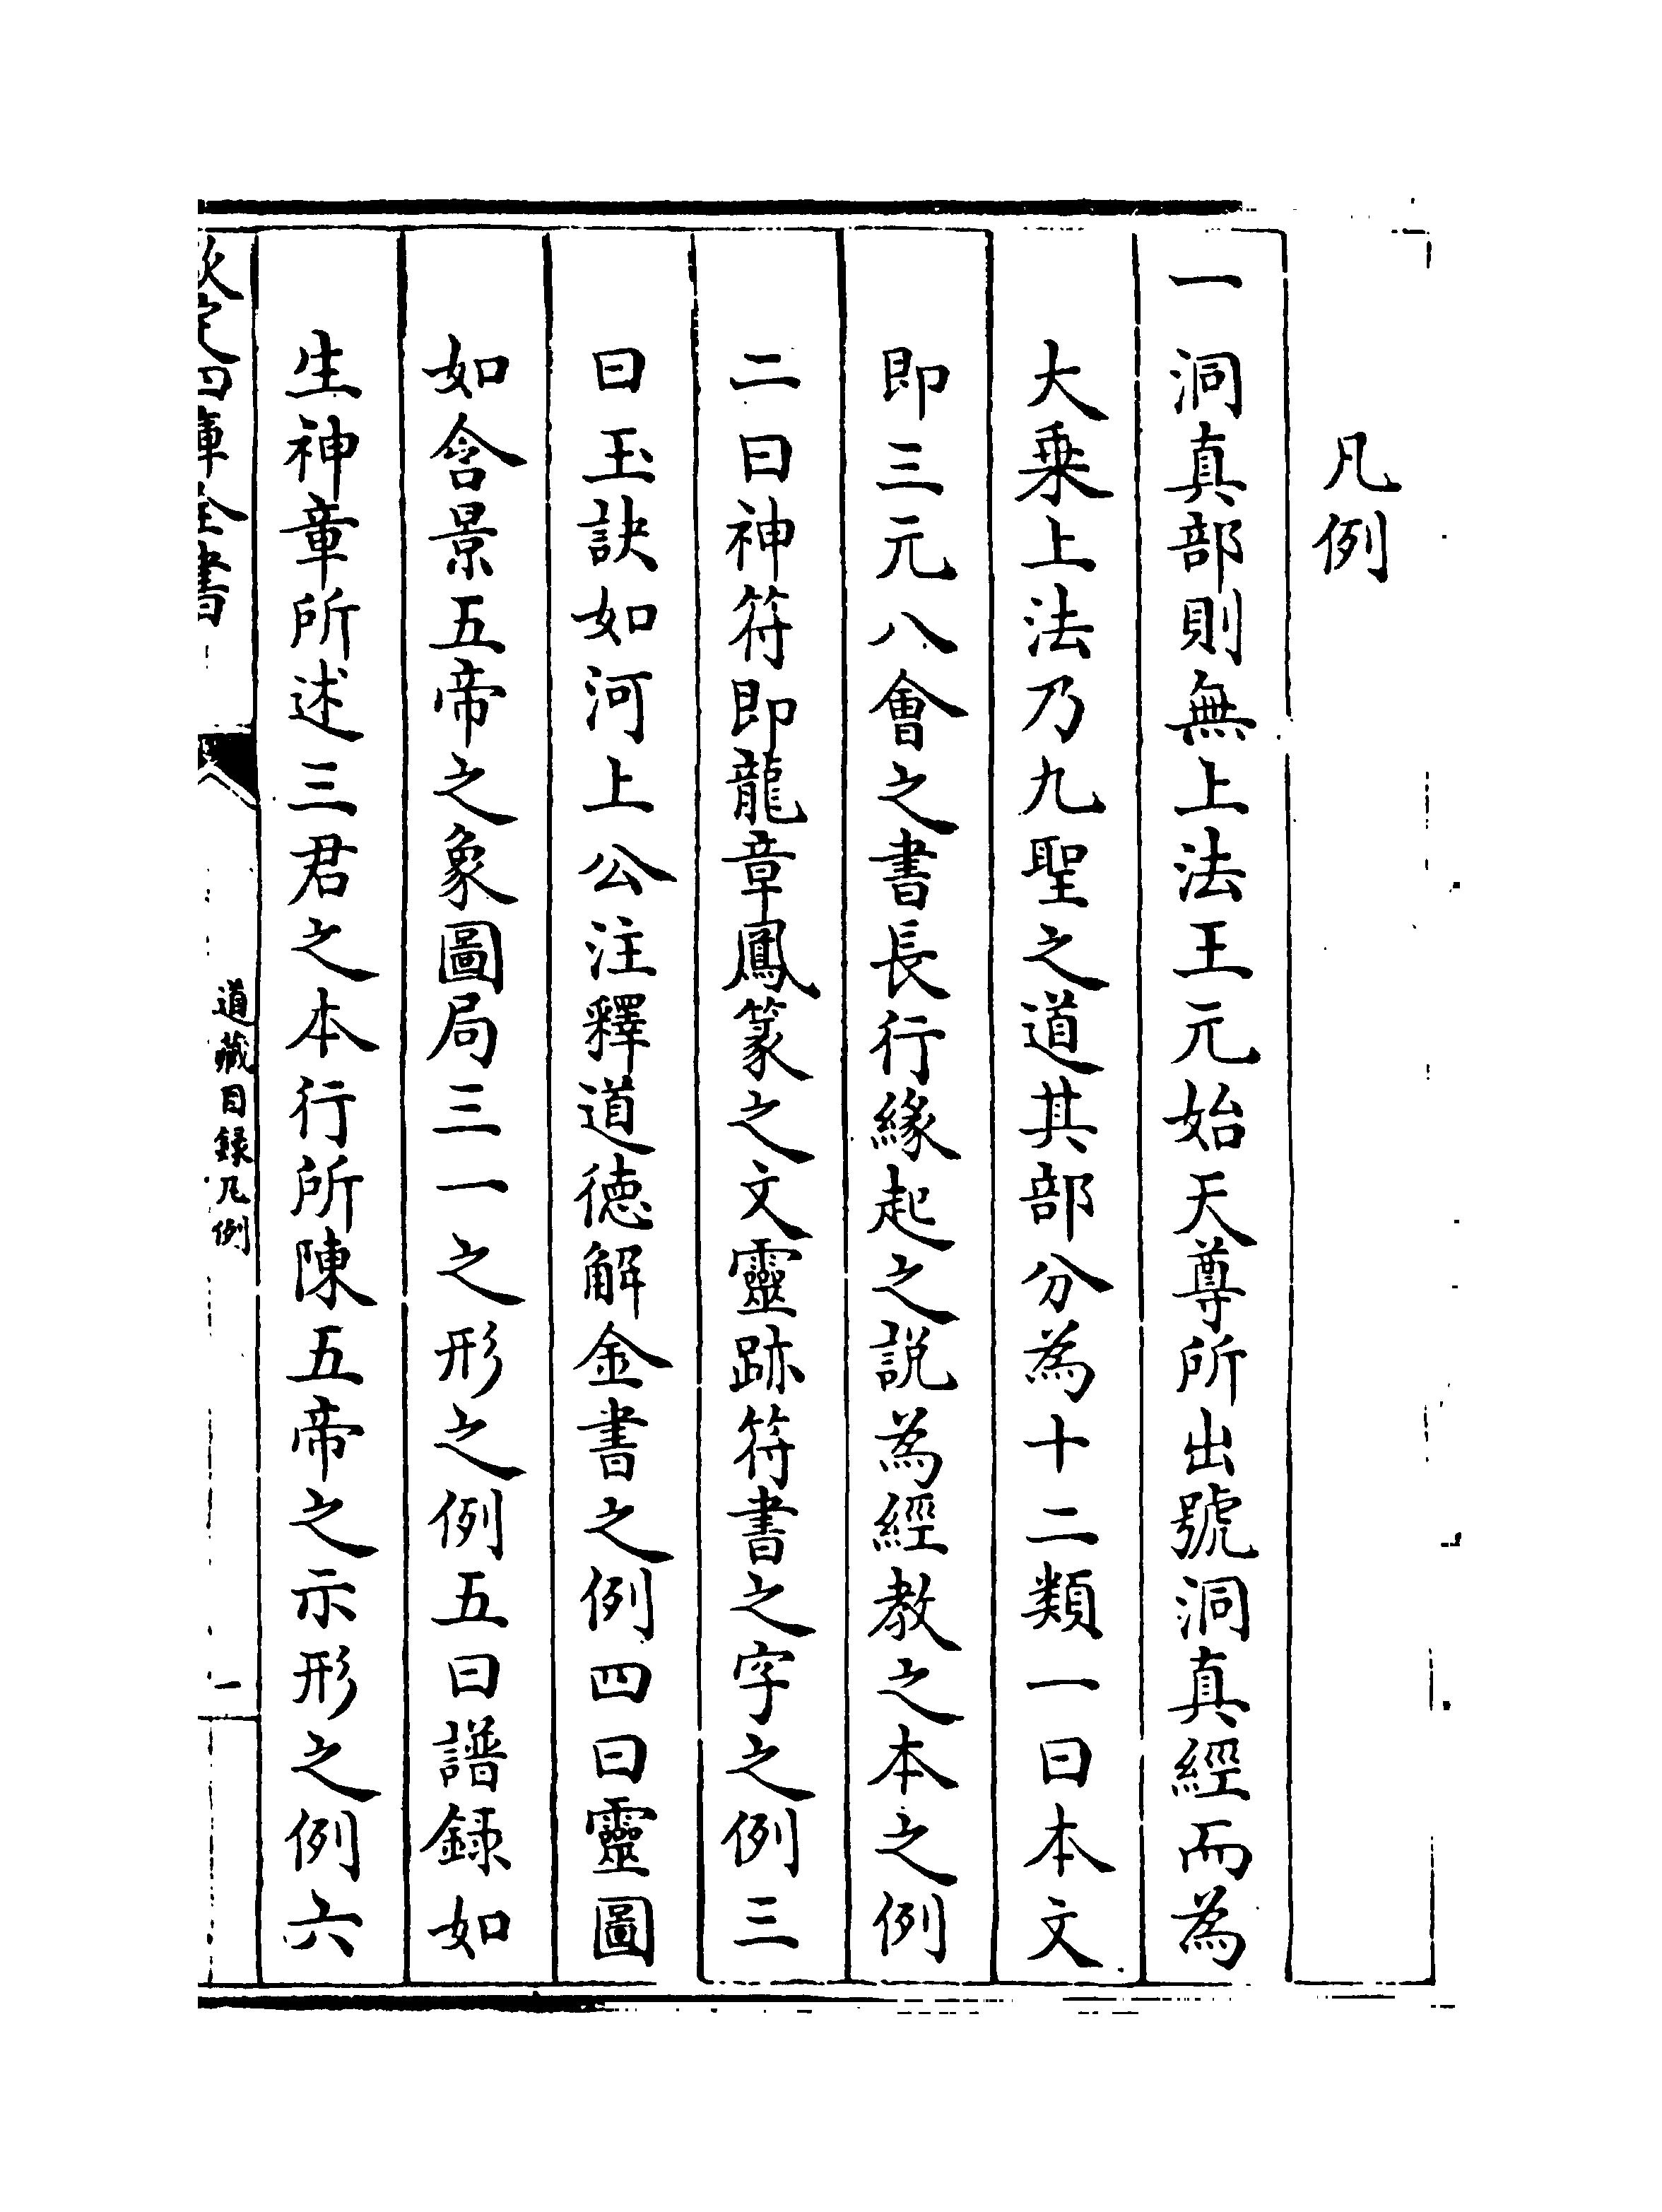 凡例
一洞真部則無上法王元始天尊所出號洞真經而為
大乗上法乃九聖之道其部分為十二類一曰本文
即三元八會之書長行緣起之説為經教之本之例
二曰神符即龍章鳳篆之文靈跡符書之字之例三
曰玉訣如河上公注釋道徳解金書之例四曰靈圖
如含景五帝之象圖局三一之形之例五曰譜録如
生神章所述三君之本行所陳五帝之示形之例六
欽定四庫全書
道藏目録凡例
一